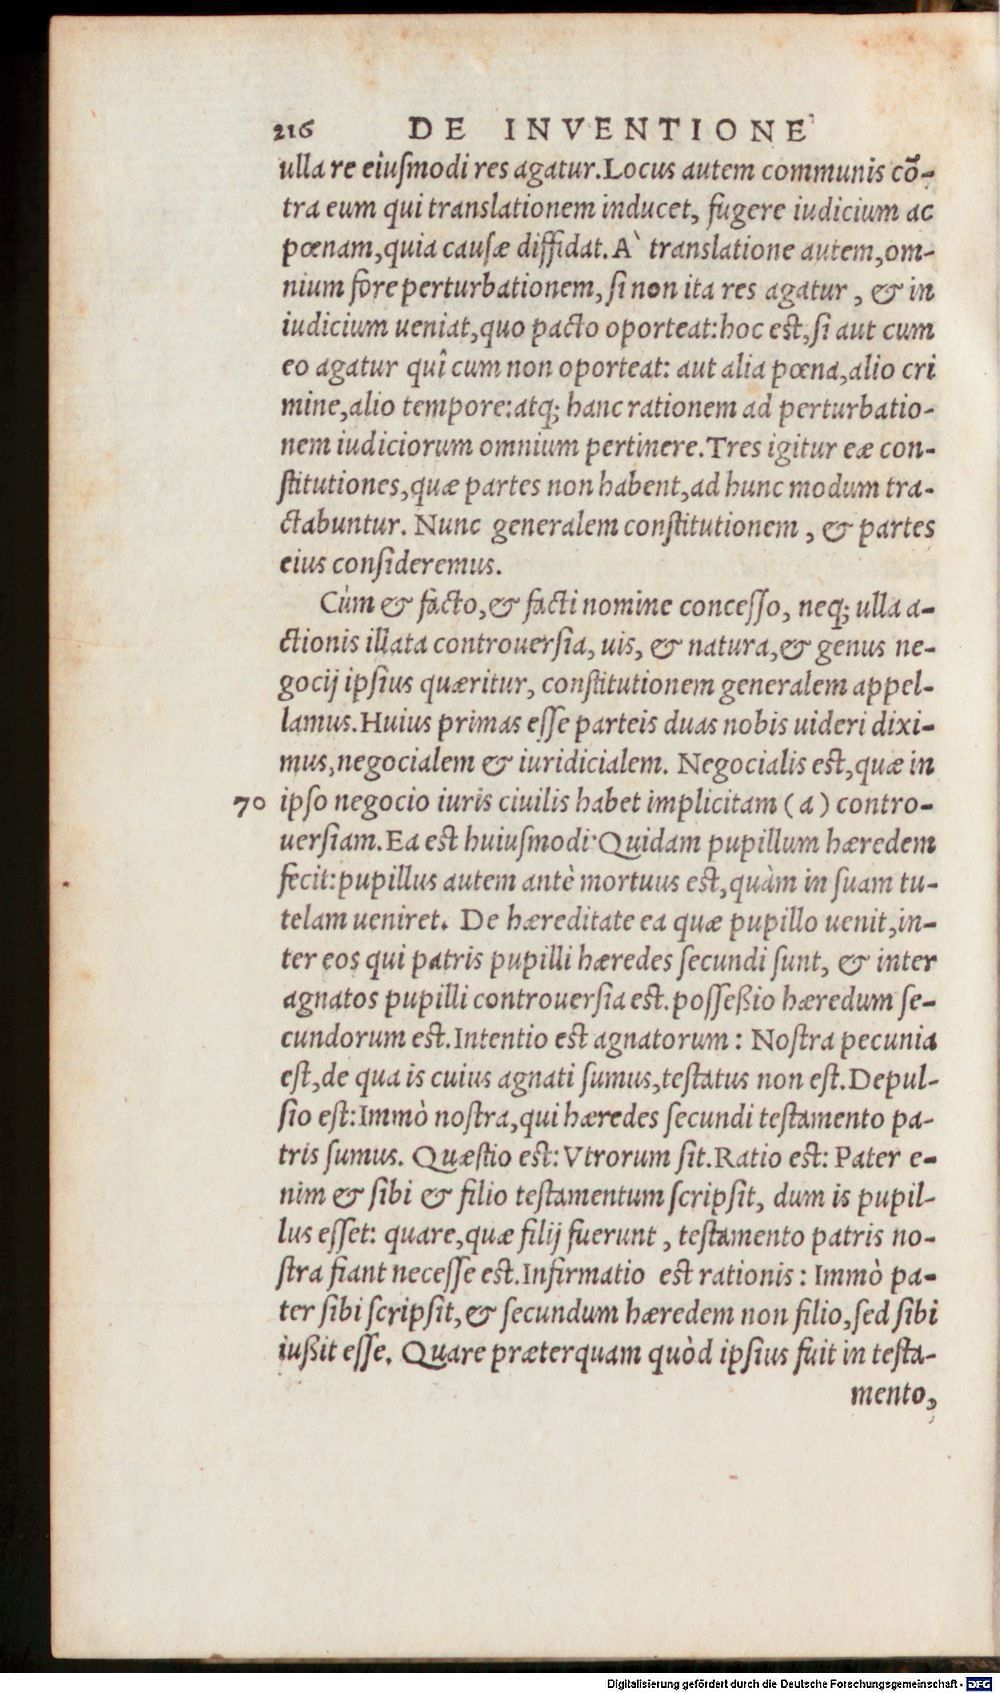 216 DE INVENTIONE
ulla re eiuſmodi res agatur. Locus autem communis cõ-
tra eum qui translationem inducet, fugere iudicium ac
pœnam, quia cauſæ diffidat. A` translatione autem, om-
nium fore perturbationem, ſi non ita res agatur, & in
iudicium ueniat, quo pacto oporteat: hoc est, ſi aut cum
eo agatur quî cum non oporteat: aut alia pœna, alio cri
mine, alio tempore: atq; hanc rationem ad perturbatio-
nem iudiciorum omnium pertinere. Tres igitur eæ con-
ſtitutiones, quæ partes non habent, ad hunc modum tra-
ctabuntur. Nunc generalem conſtitutionem, & partes
eius conſideremus.
Cùm & facto, & facti nomine conceſſo, neq; ulla a-
ctionis illata controuerſia, uis, & natura, & genus ne-
gocij ipſius quæritur, conſtitutionem generalem appel-
lamus. Huius primas eſſe parteis duas nobis uideri dixi-
mus, negocialem & iuridicialem. Negocialis est, quæ in
70 ipſo negocio iuris ciuilis habet implicitam (a) contro-
uerſiam. Ea est huiuſmodi: Quidam pupillum hæredem
fecit: pupillus autem antè mortuus est, quàm in ſuam tu-
telam ueniret. De hæreditate ea quæ pupillo uenit, in-
ter eos qui patris pupilli hæredes ſecundi ſunt, & inter
agnatos pupilli controuerſia est. poſſeßio hæredum ſe-
cundorum est. Intentio est agnatorum: Noſtra pecunia
eſt, de qua is cuius agnati ſumus, teſtatus non eſt. Depul-
ſio eſt: Immò noſtra, qui hæredes ſecundi teſtamento pa-
tris ſumus. Quæſtio eſt: Vtrorum ſit. Ratio eſt: Pater e-
nim & ſibi & filio teſtamentum ſcripſit, dum is pupil-
lus eſſet: quare, quæ filij fuerunt, teſtamento patris no-
ſtra fiant neceſſe est. Infirmatio est rationis: Immò pa-
ter ſibi ſcripſit, & ſecundum hæredem non filio, ſed ſibi
iußit eſſe. Quare præterquam quòd ipſius fuit in teſta-
mento,
Digitalisierung gefördert durch die Deutsche Forschungsgemeinschaft - DFG